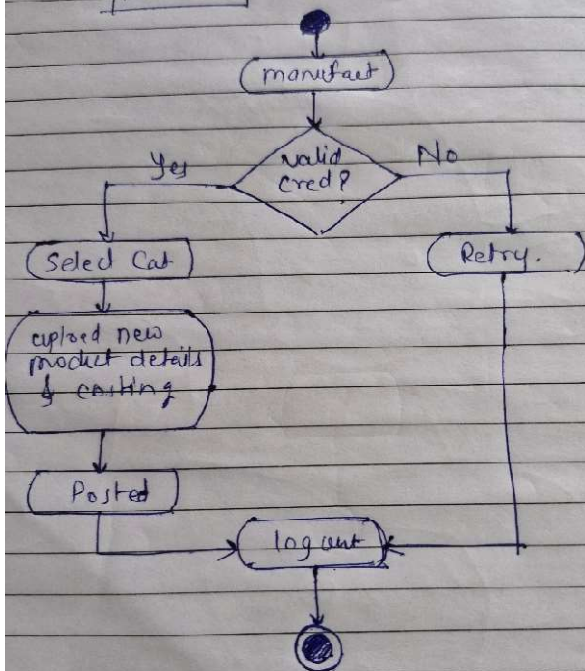 manufact
valid
cred?
Yes
No
Select Cat
Retry.
upload new
product details
& costing
Posted
log out